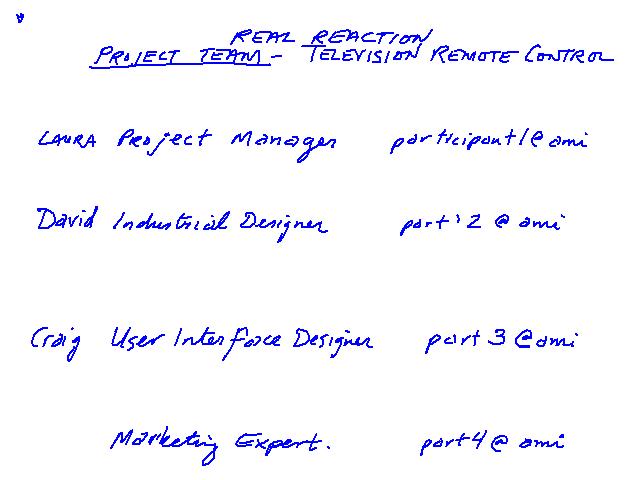 REAL REACTION
PROJECT TEAM - TELEVISION REMOTE CONTROL
LAURA Project Manager participant1@ami
David Industrial Designer parti2@ami
Craig User Interface Designer part3@ami
Marketing Expert. part4@ami